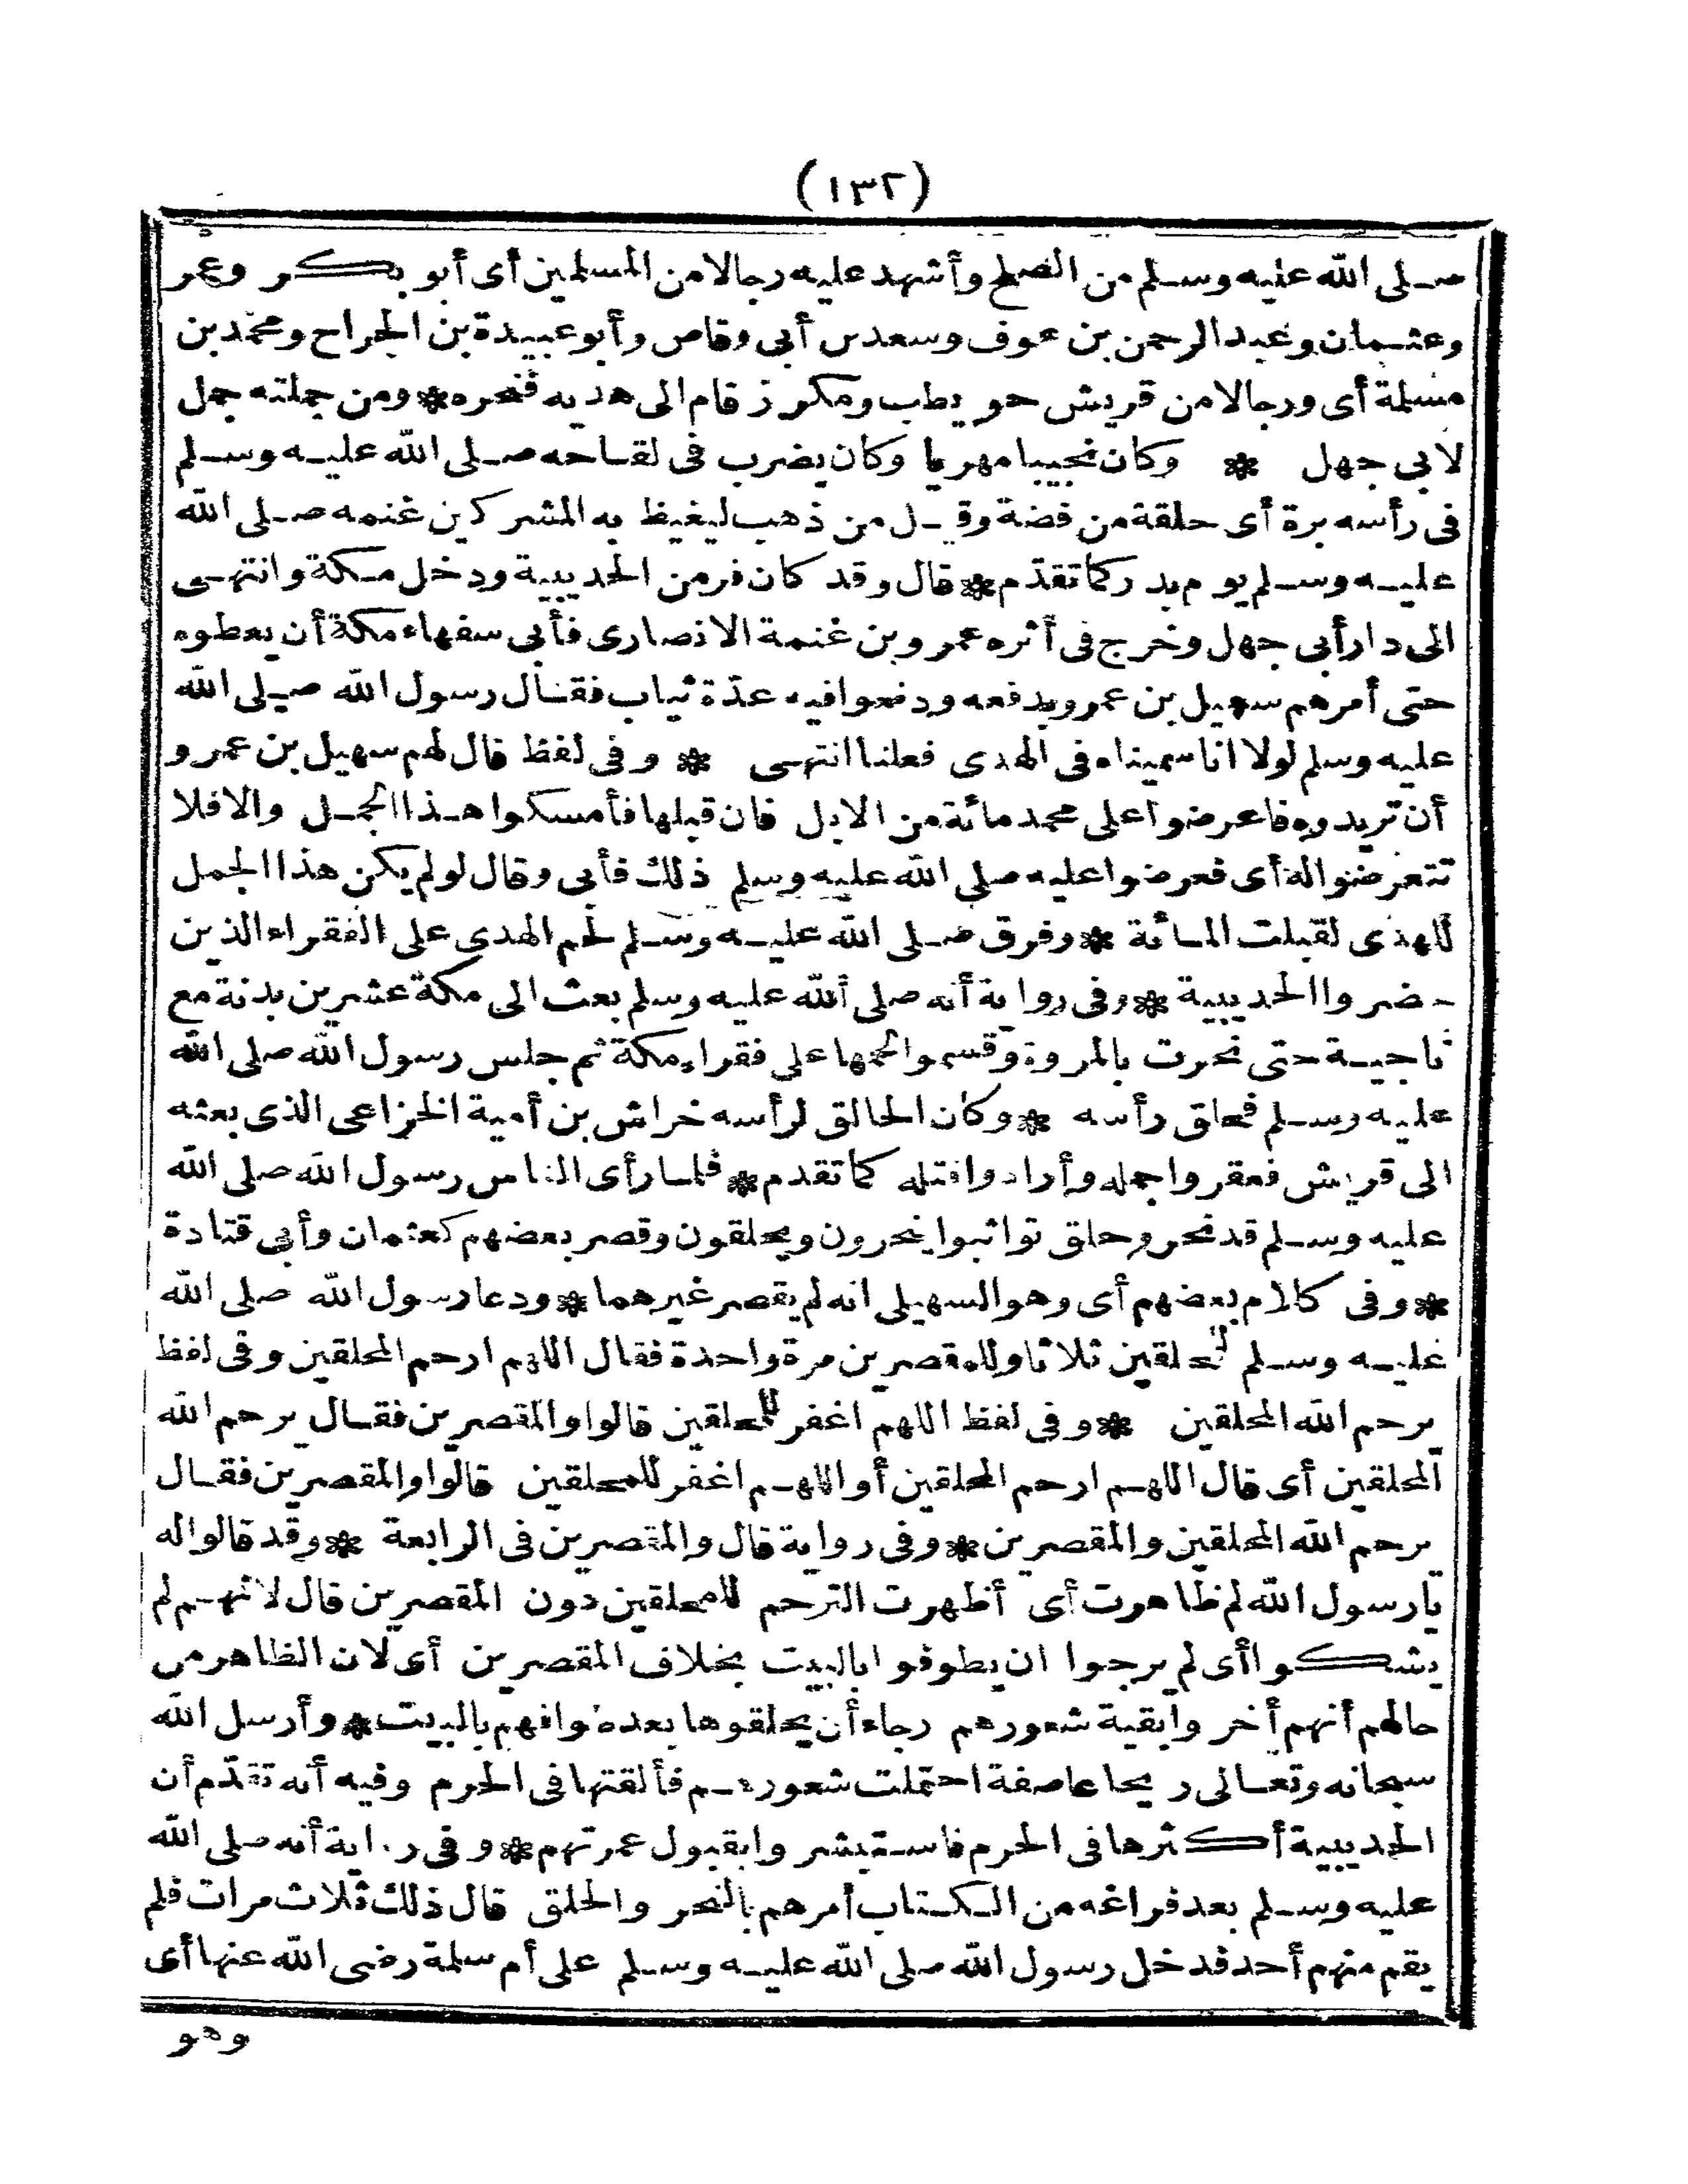 (١٣٢)
صلى الله عليه وسلم من الصلح وأشهد عليه رجالا من المسلمين أى أبو بكر وعمر
وعثمان وعبد الرحمن بن عوف وسعد بن أبى وقاص وأبو عبيدة بن الجراح ومحمد بن
مسلمة أى ورجالا من قريش حويطب ومكرز قام الى هديه فنحره * ومن جملته جمل
لابى جهل * وكان نجيبا مهريا وكان يضرب فى لقاحه صلى الله عليه وسلم
فى رأسه برة أى حلقة من فضة وقيل من ذهب ليغيظ به المشركين غنمه صلى الله
عليه وسلم يوم بدر كما تقدم * قال وقد كان فر من الحديبية ودخل مكة وانتهى
الى دار أبى جهل وخرج فى أثره عمرو بن غنمة الانصارى فأبى سفهاء مكة أن يعطوه
حتى أمرهم سهيل بن عمرو بدفعه ودفعوا فيه عدّة ثياب فقال رسول الله صلى الله
عليه وسلم لولا انا سميناه فى الهدى فعلنا انتهى * وفى لفظ قال لهم سهيل بن عمرو
أن تريدوه فاعرضوا على محمد مائة من الابل فان قبلها فأمسكوا هذا الجمل والا فلا
تتعرضوا له أى فعرضوا عليه صلى الله عليه وسلم ذلك فأبى وقال لو لم يكن هذا الجمل
للهدى لقبلت المائة * وفرق صلى الله عليه وسلم لحم الهدى على الفقراء الذين
حضروا الحديبية * وفى رواية أنه صلى الله عليه وسلم بعث الى مكة عشرين بدنة مع
ناجية حتى نحرت بالمروة وقسموا لحمها على فقراء مكة ثم جلس رسول الله صلى الله
عليه وسلم فحلق رأسه * وكان الحالق لرأسه خراش بن أمية الخزاعى الذى بعثه
الى قريش فعقروا جمله وأرادوا قتله كما تقدم * فلما رأى الناس رسول الله صلى الله
عليه وسلم قد نحر وحلق تواثبوا ينحرون ويحلقون وقصر بعضهم كعثمان وأبى قتادة
* وفى كلام بعضهم أى وهو السهيلى انه لم يقصر غيرهما * ودعا رسول الله صلى الله
عليه وسلم للمحلقين ثلاثا وللمقصرين مرة واحدة فقال اللهم ارحم المحلقين وفى لفظ
يرحم الله المحلقين * وفى لفظ اللهم اغفر للمحلقين قالوا والمقصرين فقال يرحم الله
المحلقين أى قال اللهم ارحم المحلقين أو اللهم اغفر للمحلقين قالوا والمقصرين فقال
يرحم الله المحلقين والمقصرين * وفى رواية قال والمقصرين فى الرابعة * وقد قالوا له
يا رسول الله لم ظاهرت أى أظهرت الترحم للمحلقين دون المقصرين قال لانهم لم
يشكوا أى لم يرجوا ان يطوفوا بالبيت بخلاف المقصرين أى لان الظاهر من
حالهم أنهم أخروا بقية شعورهم رجاء أن يحلقوها بعد طوافهم بالبيت * وأرسل الله
سبحانه وتعالى ريحا عاصفة احتملت شعورهم فألقتها فى الحرم وفيه أنه تقدّم أن
الحديبية أكثرها فى الحرم فاستبشروا بقبول عمرتهم * وفى رواية أنه صلى الله
عليه وسلم بعد فراغه من الكتاب أمرهم بالنحر والحلق قال ذلك ثلاث مرات فلم
يقم منهم أحد فدخل رسول الله صلى الله عليه وسلم على أم سلمة رضى الله عنها أى
وهو